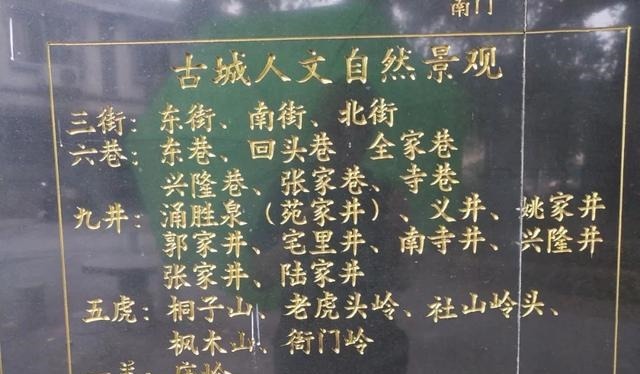 南门
古城人文自然景观
三街：东街、南街、北街
六巷：东巷、回头巷 全家巷
兴隆巷、张家巷、寺巷
九井：涌胜泉（苑家井）、义井、姚家井
郭家井、宅里井、南寺井、兴隆井
张家井、陆家井
五虎：桐子山、老虎头岭、社山岭头、
枫木山、衙门岭